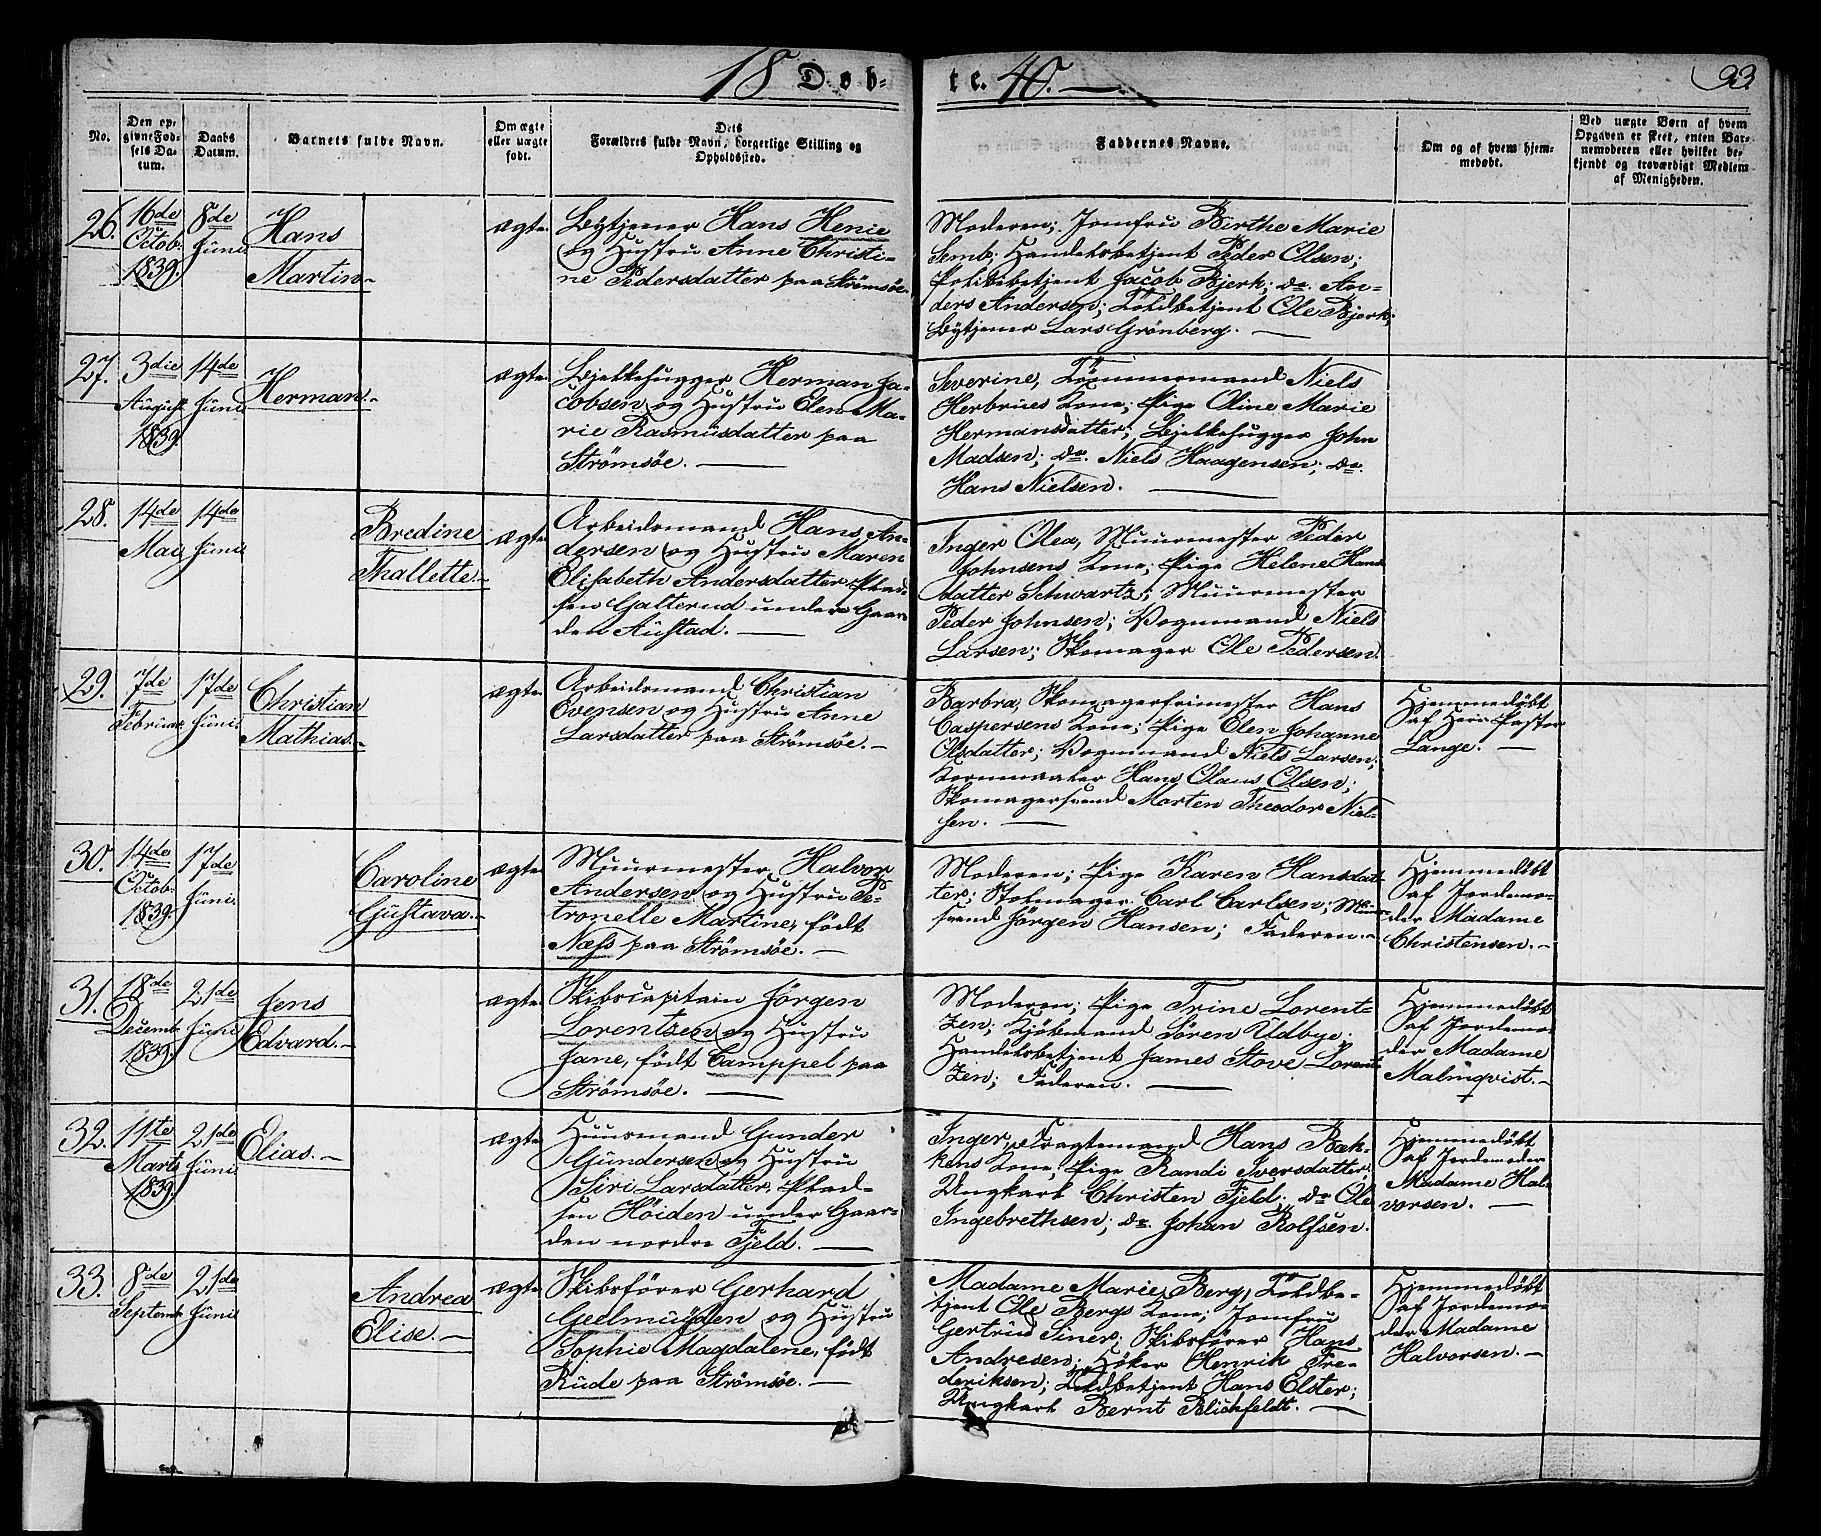 18 Døb-
te. 40.
93.
No.
Den op-
givne Fød-
sels Da-
tum.
Daabs
Datum.
Barnets fulde Navn.
Om ægte
eller uægte
født.
Dets
Forældres fulde Navn, borgerlige Stilling og
Opholdssted.
Faddernes Navne.
Om og af hvem hjem-
medøbt.
Ved uægte Børn af hvem
Opgaven er skeet, enten Bar-
nemoderen eller hvilket be-
kjendt og troværdigt Medlem
af Menigheden.
26.
16de
Octob.
1839.
8de
Juni
Hans
Martin.
ægte
Bytjener Hans Henie
og Hustru Anne Christi-
ne Pedersdatter paa Strömsöe.
Moderen; Jomfru Birthe Marie
Semb; Handelsbetjent Peder Olsen;
Politibetjent Jacob Bjerk; do. An-
ders Andersen; Toldbetjent Ole Bjerk;
Bytjener Lars Grönberg.
27.
3die
August
1839
14de
Juni
Herman.
ægte
Bjelkehugger Herman Ja-
cobsen og Hustru Elen Ma-
rie Rasmusdatter paa
Strömsöe.
Severine, Tömmermand Niels
Herbrues Kone; Pige Oline Marie
Hermansdatter; Bjelkehugger John
Madsen; do. Niels Haagensen; do.
Hans Nielsen.
28.
14de
Mai
14de
Juni
Bredine
Thallette.
ægte
Arbeidsmand Hans An-
dersen og Hustru Maren
Elisabeth Andersdatter Plad-
sen Galterud under Gaar-
den Austad.
Inger Olea, Muurmester Peder
Johnsens Kone; Pige Helene Hans
datter Schwartz; Muurmester
Peder Johnsen; Vognmand Niels
Larsen; Skomager Ole Pedersen.
29.
7de
Februar
17de
Juni
Christian
Mathias.
ægte
Arbeidsmand Christian
Evensen og Hustru Anne
Larsdatter paa Strömsöe.
Barbra, Skomagerfrimester Hans
Caspersens Kone; Pige Elen Johanne
Olsdatter; Vognmand Niels Larsen;
Kornmaaler Hans Olaus Olsen;
Skomagersvend Morten Theodor Niel-
sen.
Hjemmedöbt
af Herr Pastor
Lange.
30.
14de
Octob.
1839.
17de
Juni.
Caroline
Gustava.
ægte
Muurmester Halvor
Andersen og Hustru Pe-
tronelle Martine, födt
Næss paa Strömsöe.
Moderen; Pige Karen Hansdat-
ter; Stolmager Carl Carlsen; Muur-
svend Jörgen Hansen; Faderen.
Hjemmedöbt
af Jordemo-
der Madame
Christensen.
31.
18de
Decemb.
1839.
21de
Juni
Jens
Edvard.
ægte
Skibscapitain Jörgen
Lorentzen og Hustru
Jane, födt Camppel paa
Strömsöe.
Moderen; Pige Trine Lorent-
zen; Kjöbmand Sören Udbye;
Handelsbetjent James Stove Lorent-
zen; Faderen.
Hjemmedöbt
af Jordemo-
der Madame
Malmqvist.
32.
11te
Marts
1839.
21de
Juni
Elias.
ægte
Huusmand Gunder
Gundersen og Hustru
Siri Larsdatter, Plad-
sen Höiden under Gaar-
den nordre Fjeld.
Inger, Fragtemand Hans Bæk-
kens Kone; Pige Randi Iversdatter;
Ungkarl Christen Fjeld. do Ole
Ingebrethsen; do. Johan Rolfsen.
Hjemmedöbt
af Jordemoder
Madame Hal-
vorsen.
33.
8de
Septemb.
21de
Juni
Andrea
Elise.
ægte
Skibsförer Gerhard
Geelmuyden og Hustru
Sophie Magdalene, födt
Rude paa Strömsöe.
Madame Marie Berg, Toldbe-
tjent Ole Bergs Kone; Jomfru
Gertrud Siner; Skibsförer Hans
Andresen; Höker Henrik Fre-
deriksen; Toldbetjent Hans Elster;
Ungkarl Bernt Blichfeldt.
Hjemmedöbt
af Jordemo-
der Madame
Halvorsen.